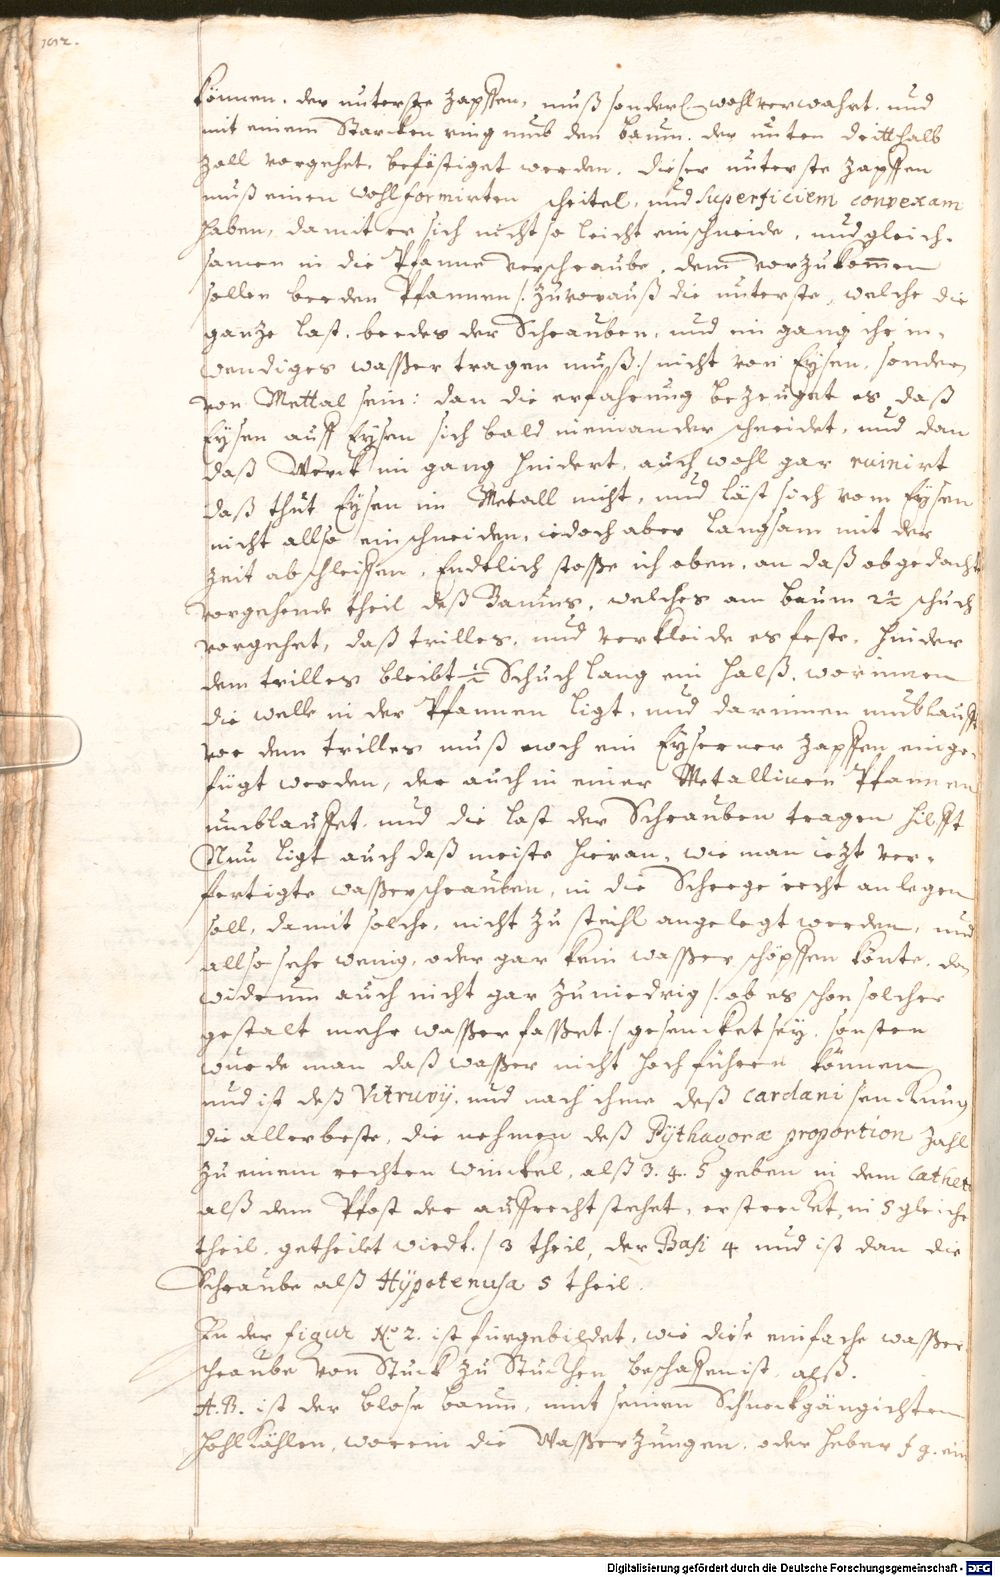 192.
können. der unterste Zapffen, muß sonderl. wohl verwahrt. und
mit einem Starcken ring umb den baum. der unten dritthalb
Zoll vorgehet. befästiget werden. dieser unterste Zapffen
muß einen wohl formirten scheitel, und superficiem convexam
haben, damit er sich nicht so leicht einschneide, und gleich-
samen in die Pfanne verschraube, dem vorzukommen
sollen beeden Pfannen /: zuvorauß die unterste, welche die
ganze Last, beedes der Schrauben, und im gang ihr in-
wendiges wasser tragen muß :/ nicht von Eysen, sondern
von Mettal sein: dan die erfahrung bezeuget es daß
Eysen auff Eysen sich bald ineinander schneidet, und dan
daß Werck im gang hindert, auch wohl gar ruinirt
daß thut Eysen im Metall nicht, und läst sich vom Eysen
nicht allso einschneiden, iedoch aber langsam mit der
Zeit abschleiffen, Endtlich stosse ich oben, an daß obgedacht
vorgehende theil deß Baumes, welches am baum 2½ schuch
vorgehet, daß trilles, und verkleide es feste, hinder
dem trilles bleibt ½ Schuch lang ein Halß, worinnen
die welle in der Pfannen ligt, und darinnen umblauff
vor dem trilles muß noch ein Eyserner Zapffen einge-
fügt werden, der auch in einer Metallinen Pfannen
umblauffet und die last der Schrauben tragen hilfft
Nun ligt auch daß meiste hieran, wie man iezt ver-
fertigte wasserschrauben, in die Schrege recht anlegen
soll, damit solche, nicht zu steihl angelegt werden, und
allso sehr wenig, oder gar kein wasser schöpffen könte, dan
widerum auch nicht gar zu niedrig /: ob es schon solcher
gestalt mehr wasser fasset :/ gesencket sey, sonsten
wurde man daß wasser nicht hoch führen können
und ist deß Vitruvij, und nach ihme deß Cardani senckung
die allerbeste, die nehmen deß Pÿthagoræ proportion Zahl
zu einem rechten winckel, alß 3. 4. 5 geben in dem Cathet
alß dem Pfost der auffrecht stehet, erstrecket, in 5 gleiche
theil. getheilet wirdt :/ 3 theil, der Basi 4 und ist dan die
Schraube alß Hÿpotenusa 5 theil.
In der figur No. 2. ist fürgebildet, wie diese einfache wasser
schraube von Stuck zu Stucken beschaffen ist, alß.
A.B. ist der blose baum, mit seinen Schneckgängichten
Hohlkählen, worein die Wasserzungen, oder heber f g. ein
Digitalisierung gefördert durch die Deutsche Forschungsgemeinschaft - DFG